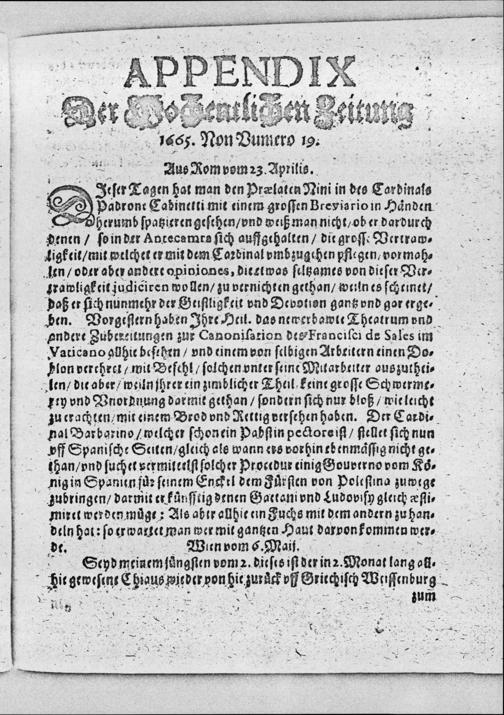 APPENDIX
Der Wochentlichen Zeitung
1665. Von Numero 19.
Aus Rom vom 23. Aprilis.
Dieser Tagen hat man den Prælaten Nini in des Cardinals
Padrone Cabinetti mit einem grossen Breviario in Händen
herumb spatzieren gesehen/ und weiß man nicht/ ob er dardurch
denen / so in der Antecamera sich auffgehalten / die grosse Vertraw-
ligkeit/ mit welcher er mit dem Cardinal umbzugehen pflegen/ vormah-
len / oder aber andere opiniones, die etwas seltzames von dieser Ver-
trawligkeit judiciren wollen/ zu vernichten gethan/ weiln es scheinet/
daß er sich nunmehr der Geistligkeit und Devotion gantz und gar erge-
ben. Vorgestern haben Ihre Heil. das newerbawte Theatrum und
andere Zubereitungen zur Canonisation des Francisci de Sales im
Vaticano allhie besehen / und einem von selbigen Arbeitern einen Do-
blon verehret / mit Befehl / solchen unter seine Mitarbeiter auszuthei-
len/ die aber/ weiln ihrer ein zimblicher Theil, keine grosse Schwerme-
rey und Unordnung darmit gethan / sondern sich nur bloß/ wie leicht
zu erachten/ mit einem Brod und Rettig versehen haben. Der Cardi-
nal Barbarino/ welcher schon ein Pabst in pectore ist / stellet sich nun
uff Spanische Seiten/ gleich als wann ers vorhin ebenmässig nicht ge-
than/ und suchet vermittelst solcher Procedur einig Gouverno vom Kö-
nig in Spanien für seinem Enckel dem Fürsten von Polestina zuwege
zubringen/ darmit er künfftig denen Gaetani und Ludovisy gleich æsti-
miret werden müge: Als aber allhie ein Fuchs mit dem andern zu han-
deln hat: so erwartet man wer mit gantzen Haut darvon kommen wer-
de. Wien vom 6. Maij.
Seyd meinem jüngsten vom 2. dieses ist der in 2. Monat lang all-
hie gewesene Chiaus wieder von hie zurück uff Griechisch Weissenburg
zum